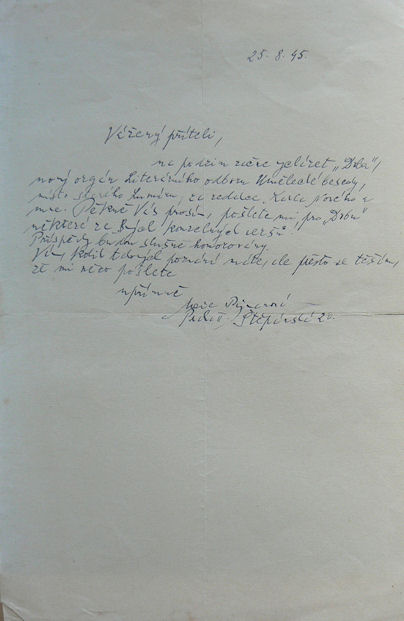 25. 8. 45.
Vážený příteli,
na podzim začne vycházet „Doba“,
nový orgán literárního odboru Umělecké besedy,
místo starého Lumíru, za redakce Karla Nového a
mne. Pěkně Vás prosím, pošlete mi pro „Dobu“
některé ze kouzelných veršů
Příspěvky budou slušně honorovány.
Vím, kolik pozvání máte, ale přesto se těším,
že mi něco pošlete
upřímně
Marie
Praha II, Štěpánská 20.